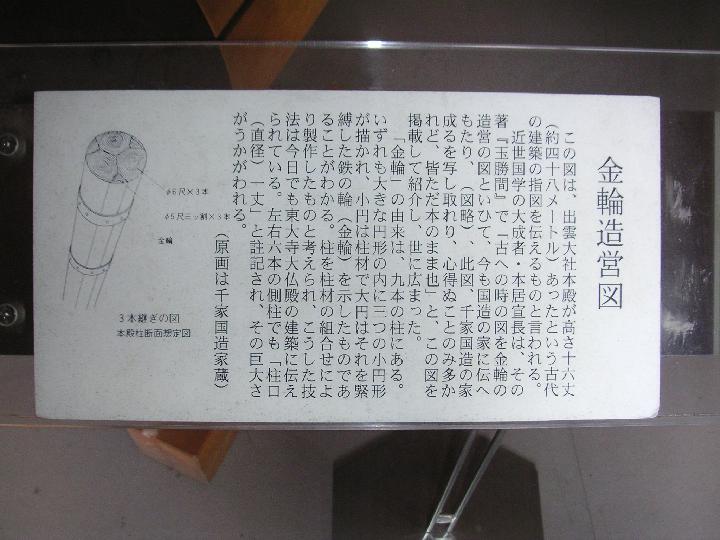 金輪造営図
この図は、出雲大社本殿が高さ十六丈
(約四十八メートル)あったという古代
の建築の指図を伝えるものと言われる。
近世国学の大成者・本居宣長は、その
著『玉勝間』で「古への時の図を金輪の
造営の図といひて、今も国造の家に伝へ
もたり、(図略)、此図、千家国造の家
成るを写し取れり、心得ぬことのみ多か
れど、皆ただ本のまま也」と、この図を
掲載して紹介し、世に広まった。
「金輪」の由来は、九本の柱にある。
いずれも大きな円形の内に三つの小円形
が描かれ、小円は柱材で大円はそれを緊
縛した鉄の輪(金輪)を示したものであ
ることがわかる。柱を柱材の組合せによ
り製作したものと考えられ、こうした技
法は今日でも東大寺大仏殿の建築に伝え
られている。左右六本の側柱でも「柱口
(直径)一丈」と註記され、その巨大さ
がうかがわれる。
(原画は千家国造家蔵)
φ6尺×3本
φ5尺三ッ割×3本
金輪
3本継ぎの図
本殿柱断面想定図